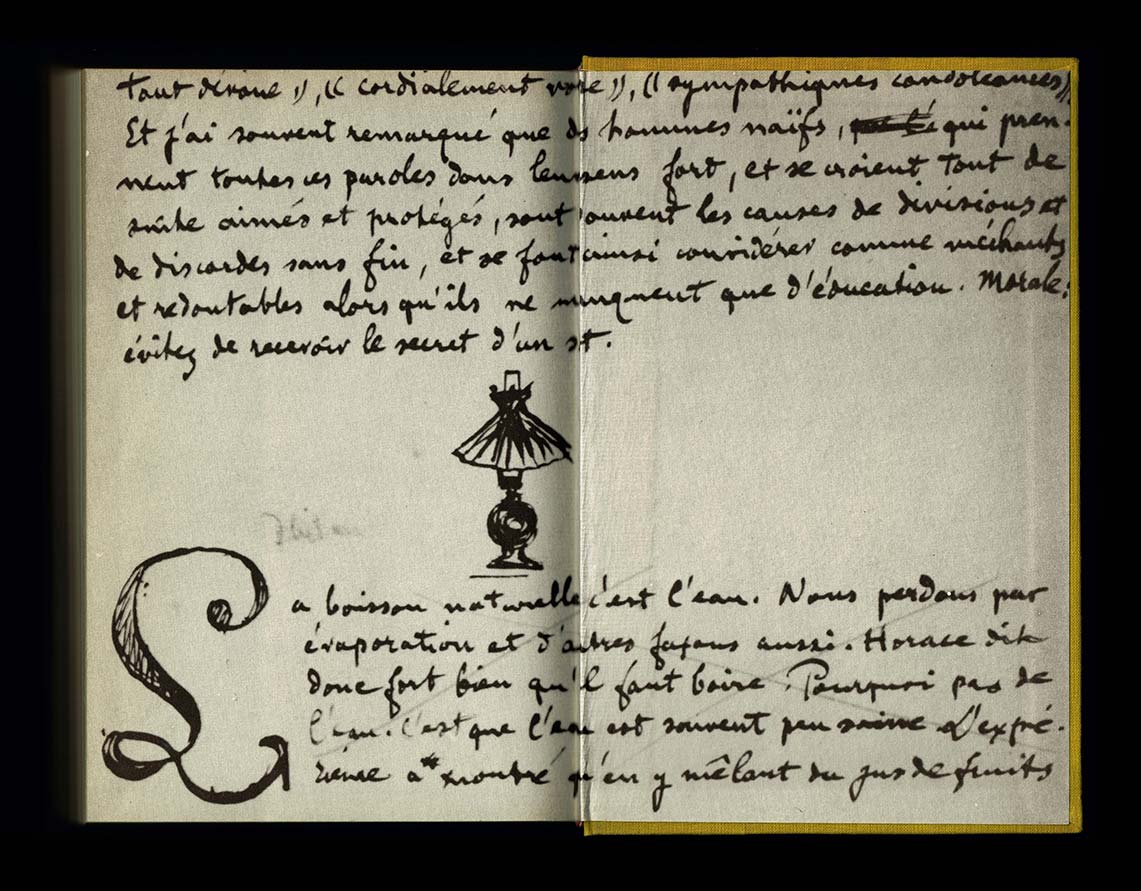 tout dévoué », « cordialement votre », « sympathiques condoléances ».
Et j'ai souvent remarqué que ds hommes naïfs, qui pren-
nent toutes ces paroles dans leur sens fort, et se croient tout de
suite aimés et protégés, sont souvent les causes de divisions et
de discordes sans fin, et se font ainsi considérer comme méchants
et redoutables alors qu'ils ne manquent que d'éducation. Morale:
évitez de recevoir le secret d'un st.
La boisson naturelle c'est l'eau. Nous perdons par
évaporation et d'autres façons aussi. Horace dit
donc fort bien qu'il faut boire. Pourquoi pas de
l'eau. C'est que l'eau est souvent peu saine. L'expé-
rience a montré qu'en y mêlant du jus de fruits